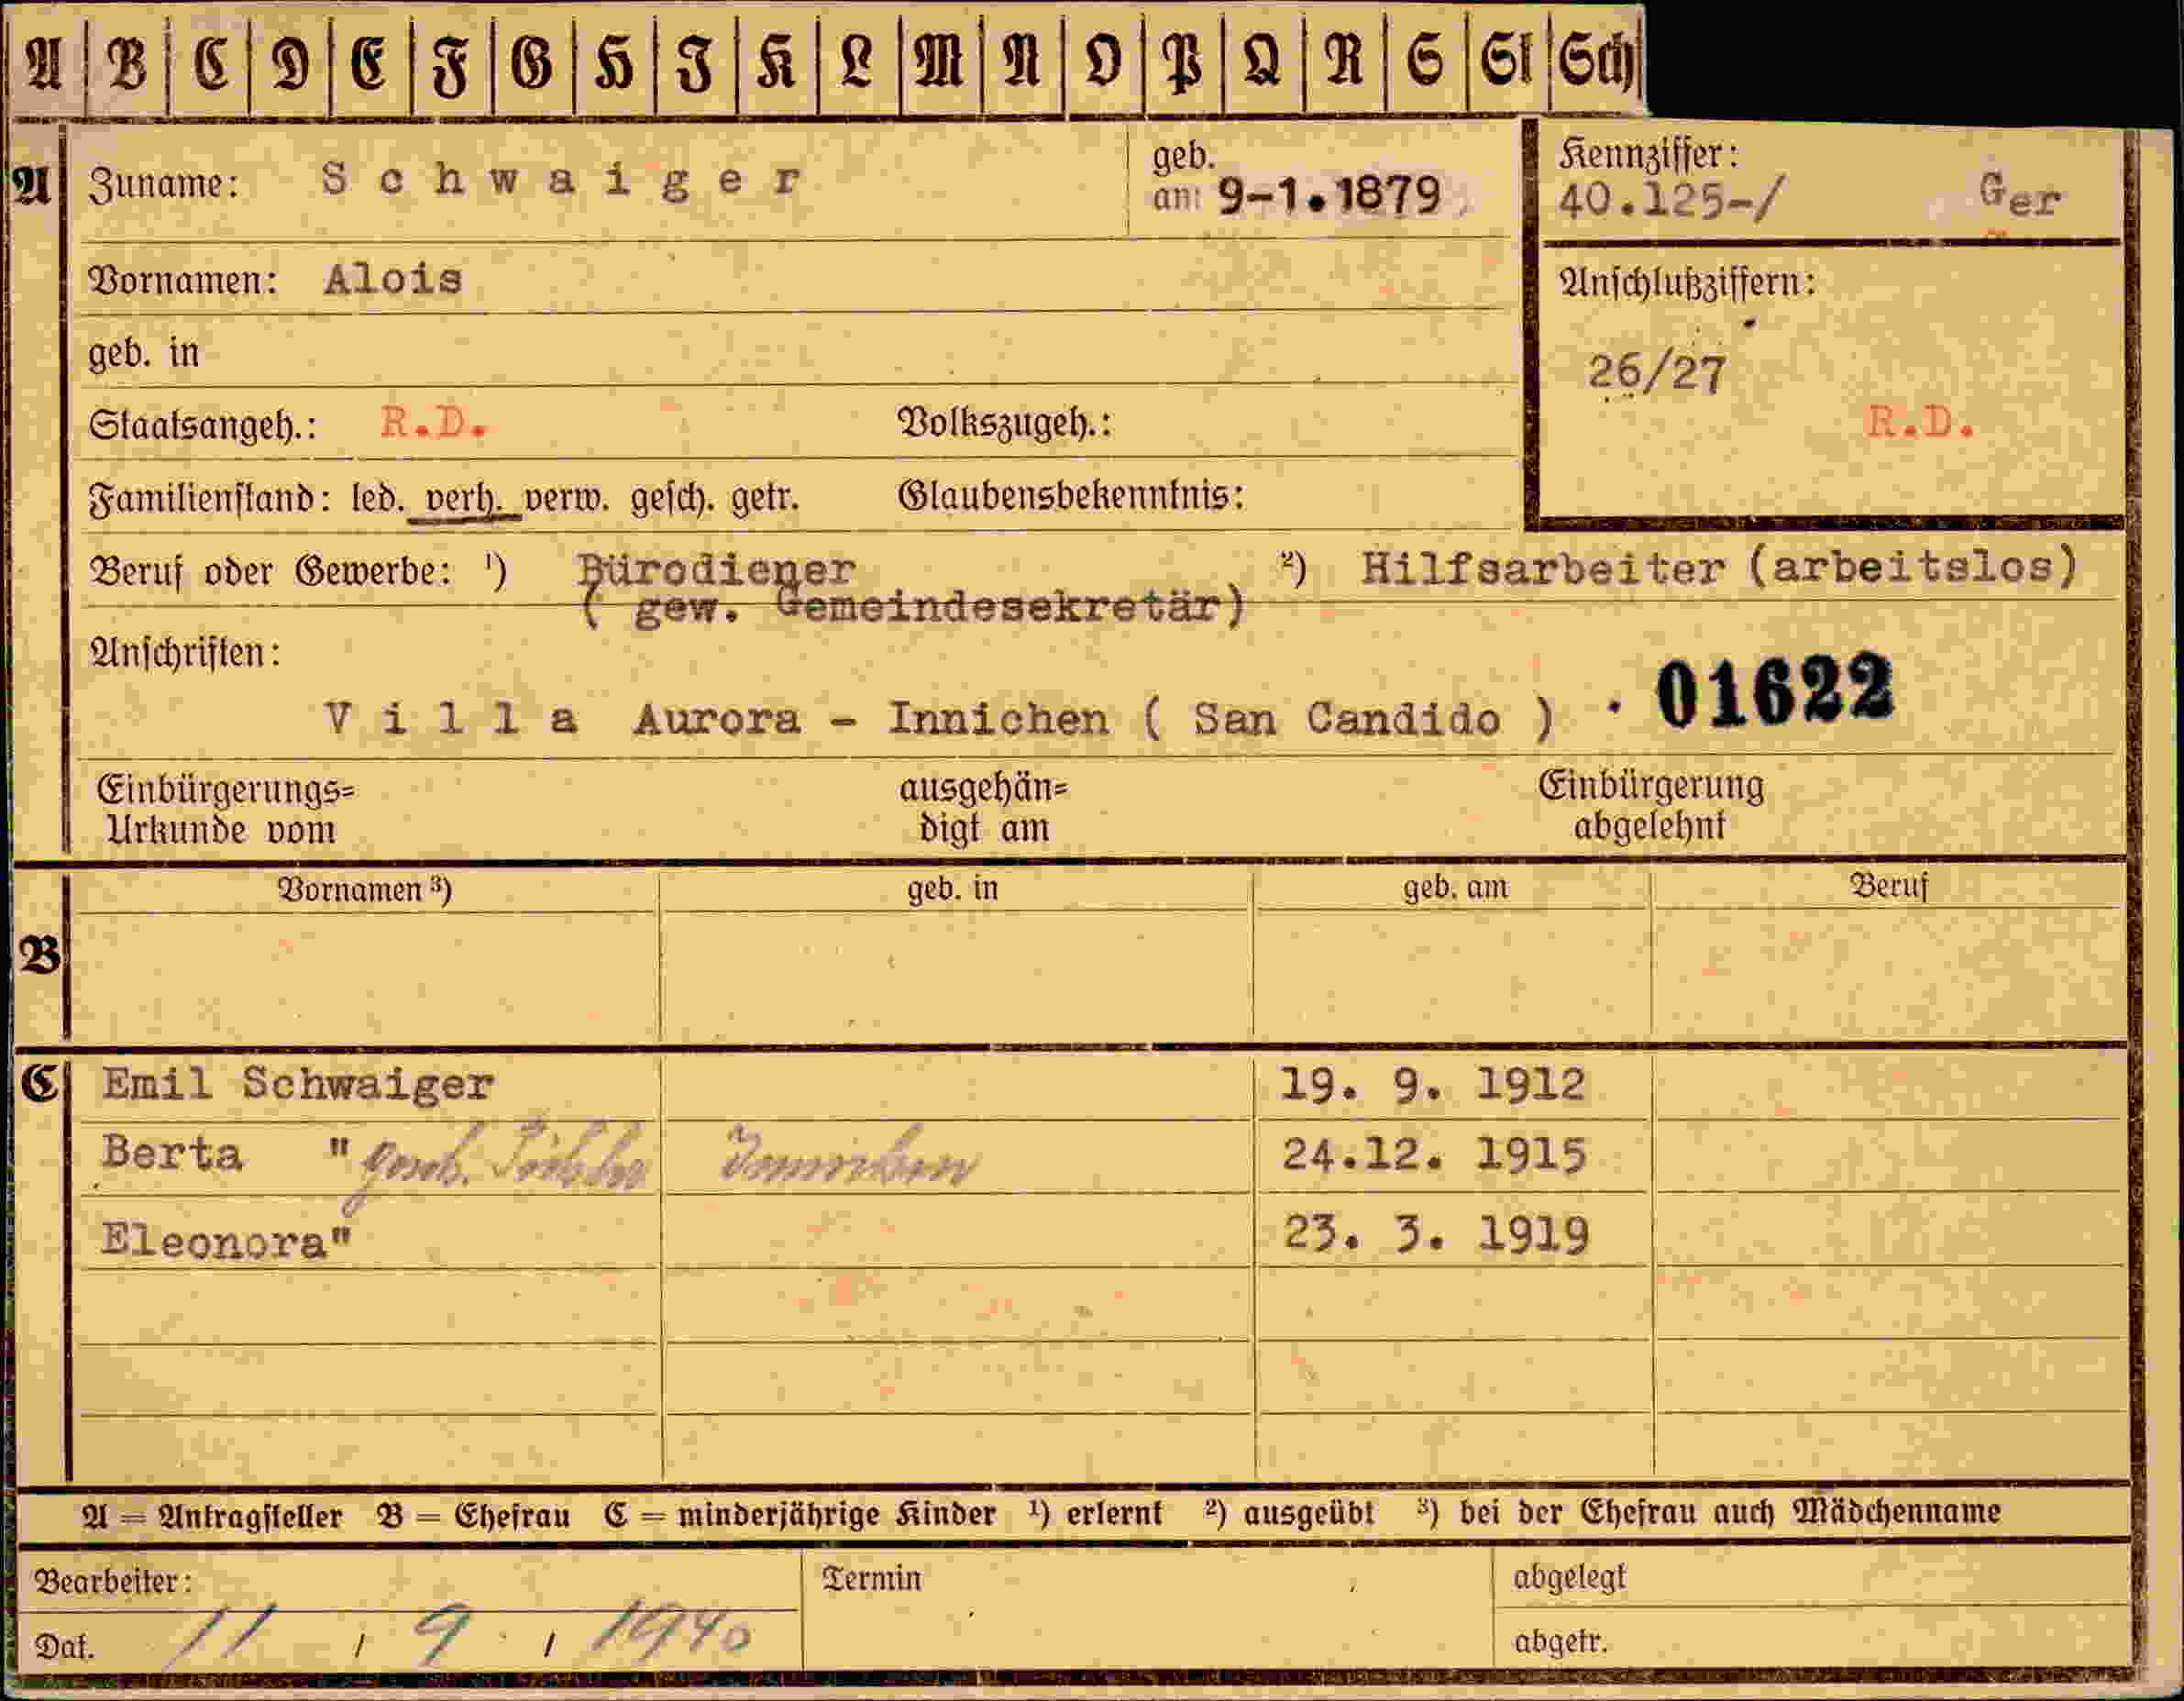 A B C D E F G H I K L M N O P Q R S St Sch
A Zuname: Schwaiger geb. am: 9-1.1879 Kennziffer: 40.125-/ Ger
Vornamen: Alois Anschlußziffern:
geb. in 26/27
Staatsangeh.: R.D. Volkszugeh.: R.D.
Familienstand: led. verh. verw. gesch. getr. Glaubensbekenntnis:
Beruf oder Gewerbe: 1) Bürodiener 2) Hilfsarbeiter (arbeitslos)
( gew. Gemeindesekretär)
Anschriften:
Villa Aurora - Innichen ( San Candido ) 01622
Einbürgerungs= ausgehän= Einbürgerung
Urkunde vom digt am abgelehnt
Vornamen 3) geb. in geb. am Beruf
B
C Emil Schwaiger 19. 9. 1912
Berta " Innichen 24.12. 1915
Eleonora" 23. 3. 1919
A = Antragsteller B = Ehefrau C = minderjährige Kinder 1) erlernt 2) ausgeübt 3) bei der Ehefrau auch Mädchenname
Bearbeiter: Termin abgelegt
Dat. 11 / 9 / 1940 abgetr.